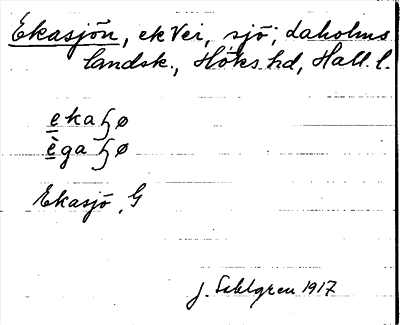 Ekasjön, ek Vei, sjö; Laholms
landsk., Höks hd, Hall. l.
eka ɧø
èga ɧø
Ekasjö, G
J. Sahlgren 1917